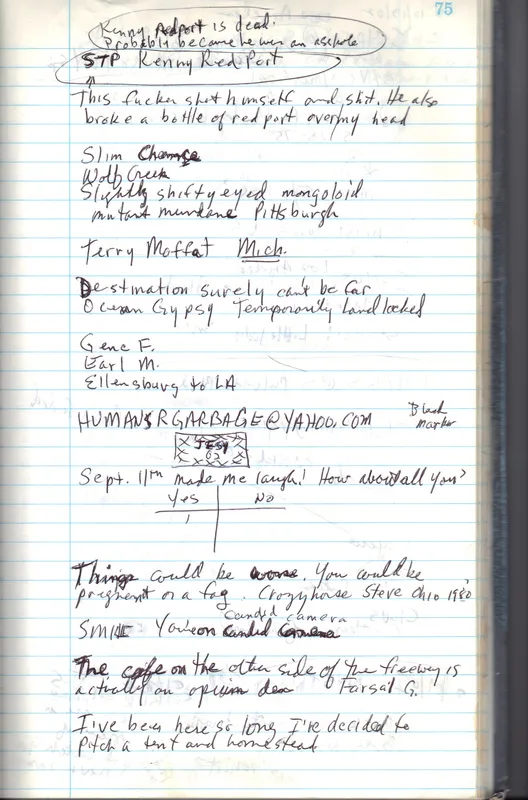 75
Kenny Redport is dead.
Probably because he was an asshole
STP Kenny Red Port
This fucker shot himself and shit. He also
broke a bottle of red port over my head
Slim Chance
Wolf Creek
Slightly shifty eyed mongoloid
mutant mundane Pittsburgh
Terry Moffat Mich.
Destination surely can't be far
Ocean Gypsy Temporarily Landlocked
Gene F.
Earl M.
Ellensburg to LA
HUMANSRGARBAGE@YAHOO.COM
Black
marker
Sept. 11th made me laugh! How about all you?
Yes No
Things could be worse. You could be
pregnant or a fag. Crazyhorse Steve Ohio 1980
candid camera
SMILE You're on candid camera
The cafe on the other side of the freeway is
actually an opium den Farsail G.
I've been here so long I've decided to
pitch a tent and homestead